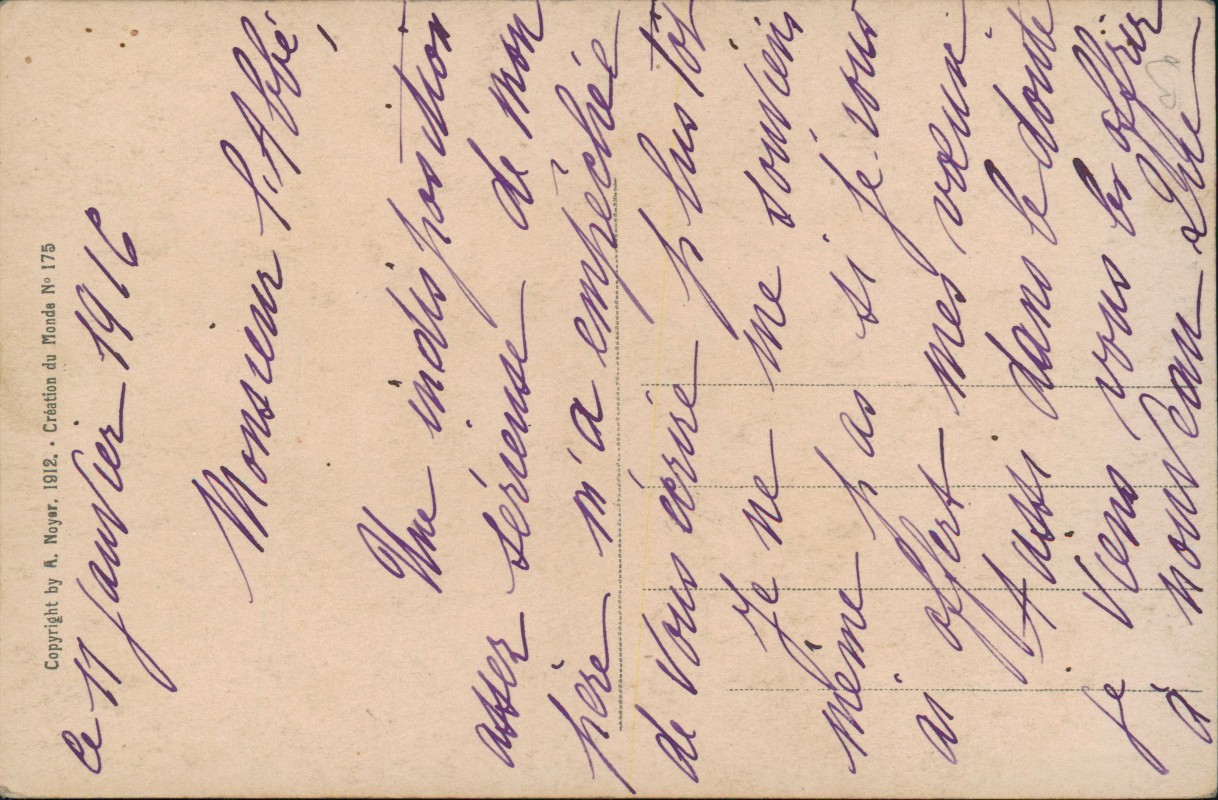 Copyright by A. Noyer, 1912. • Création du Monde No 175
Ce 11 janvier 1916
Monsieur l'Abbé,
Une indisposition
assez sérieuse de mon
père m'a empêchée
de vous écrire plus tôt
Je ne me souviens
même pas si je vous
ai offert mes vœux
Aussi dans le doute
je viens vous les offrir
à nouveau